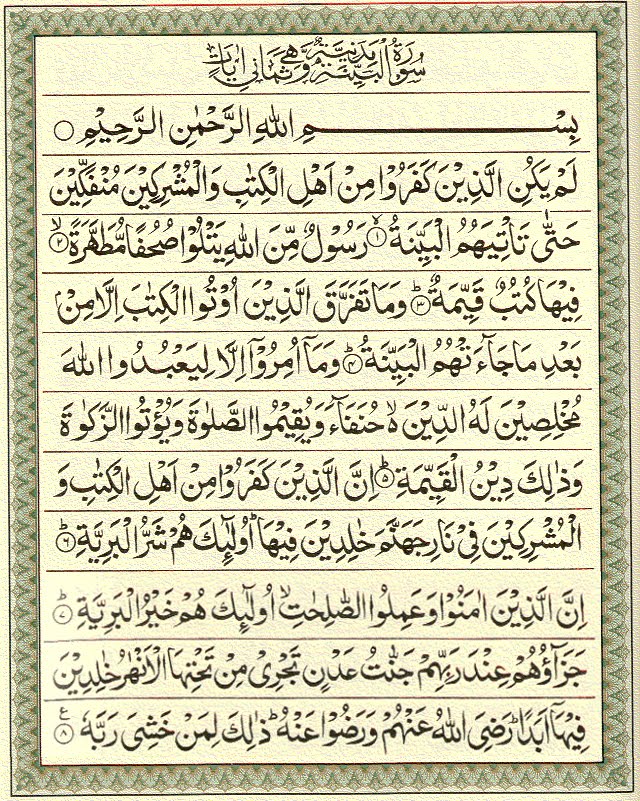 سُوْرَةُ الْبَيِّنَةِ مَدَنِيَّةٌ وَّهِىَ ثَمَانِىْ اٰيَاتٍ
بِسْــــــــــــــــــمِ اللهِ الرَّحْمٰنِ الرَّحِيْمِ ○
لَمْ يَكُنِ الَّذِيْنَ كَفَرُوْا مِنْ اَهْلِ الْكِتٰبِ وَالْمُشْرِكِيْنَ مُنْفَكِّيْنَ
حَتّٰى تَاْتِيَهُمُ الْبَيِّنَةُ ۙ﴿۱﴾ رَسُوْلٌ مِّنَ اللهِ يَتْلُوْا صُحُفًا مُّطَهَّرَةً ۙ﴿۲﴾
فِيْهَا كُتُبٌ قَيِّمَةٌ ؕ﴿۳﴾ وَمَا تَفَرَّقَ الَّذِيْنَ اُوْتُوا الْكِتٰبَ اِلَّا مِنْۢ
بَعْدِ مَا جَآءَتْهُمُ الْبَيِّنَةُ ؕ﴿۴﴾ وَمَاۤ اُمِرُوْۤا اِلَّا لِيَعْبُدُوا اللهَ
مُخْلِصِيْنَ لَهُ الدِّيْنَ ۙ۬ حُنَفَآءَ وَيُقِيْمُوا الصَّلٰوةَ وَيُؤْتُوا الزَّكٰوةَ
وَذٰلِكَ دِيْنُ الْقَيِّمَةِ ؕ﴿۵﴾ اِنَّ الَّذِيْنَ كَفَرُوْا مِنْ اَهْلِ الْكِتٰبِ وَ
الْمُشْرِكِيْنَ فِىْ نَارِ جَهَنَّمَ خٰلِدِيْنَ فِيْهَا ؕ اُولٰٓئِكَ هُمْ شَرُّ الْبَرِيَّةِ ؕ﴿۶﴾
اِنَّ الَّذِيْنَ اٰمَنُوْا وَعَمِلُوا الصّٰلِحٰتِ ۙ اُولٰٓئِكَ هُمْ خَيْرُ الْبَرِيَّةِ ؕ﴿۷﴾
جَزَآؤُهُمْ عِنْدَ رَبِّهِمْ جَنّٰتُ عَدْنٍ تَجْرِىْ مِنْ تَحْتِهَا الْاَنْهٰرُ خٰلِدِيْنَ
فِيْهَاۤ اَبَدًا ؕ رَضِىَ اللهُ عَنْهُمْ وَرَضُوْا عَنْهُ ؕ ذٰلِكَ لِمَنْ خَشِىَ رَبَّهٗ ﴿۸﴾ ع